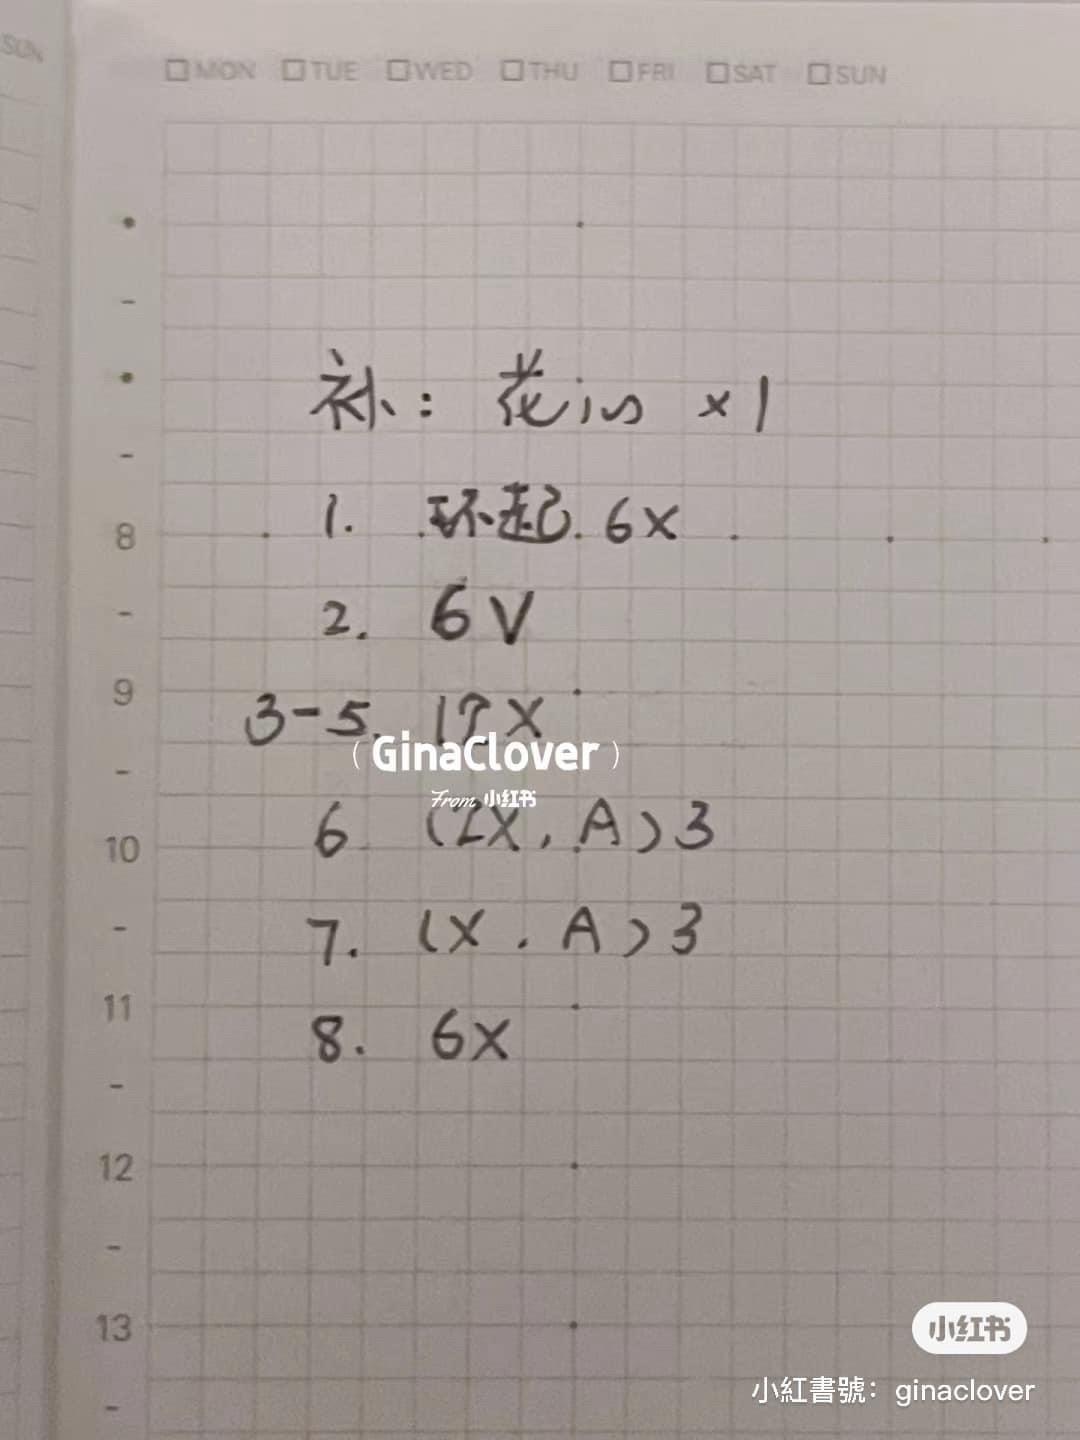 SUN
□MON □TUE □WED □THU □FRI □SAT □SUN
补: 花心 ×1
1. 环起. 6X
8
2. 6V
9
3-5. 1?X
(GinaClover)
From 小红书
6. (2X, A) 3
10
7. (X, A) 3
11
8. 6X
12
13
小红书
小紅書號: ginaclover